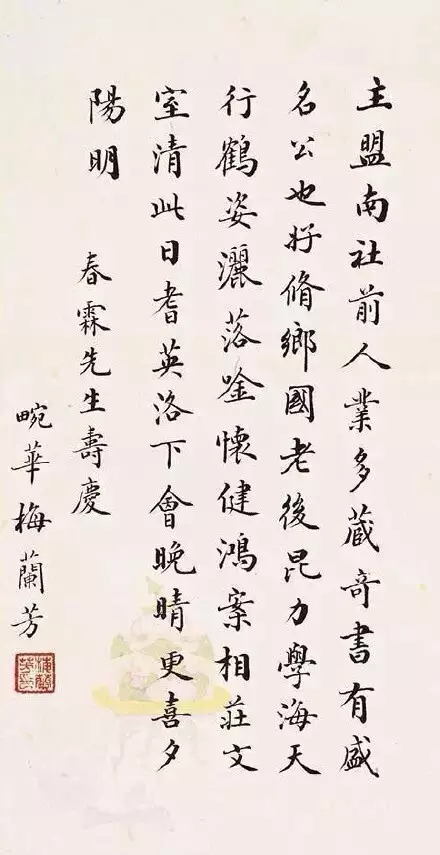 主盟南社前人業多藏奇書有盛
名公也好脩鄉國老後昆力學海天
行鶴姿灑落唫懷健鴻案相莊文
室清此日耆英洛下會晚晴更喜夕
陽明
春霖先生壽慶
畹華梅蘭芳